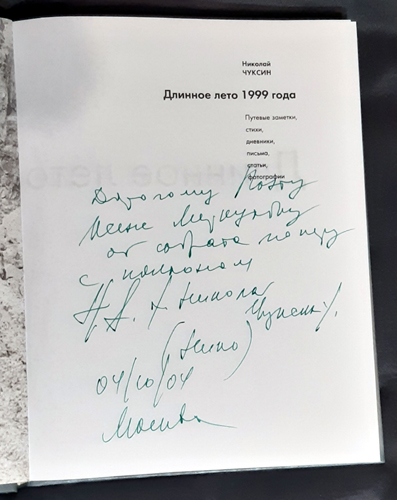 Николай
ЧУКСИН
Длинное лето 1999 года
Путевые заметки,
стихи,
дневники,
письма,
статьи,
фотографии
Дорогому Поэту
Меркулову
от собрата по перу
с поклоном
Никола
(Нико)
04/10/04
Москва